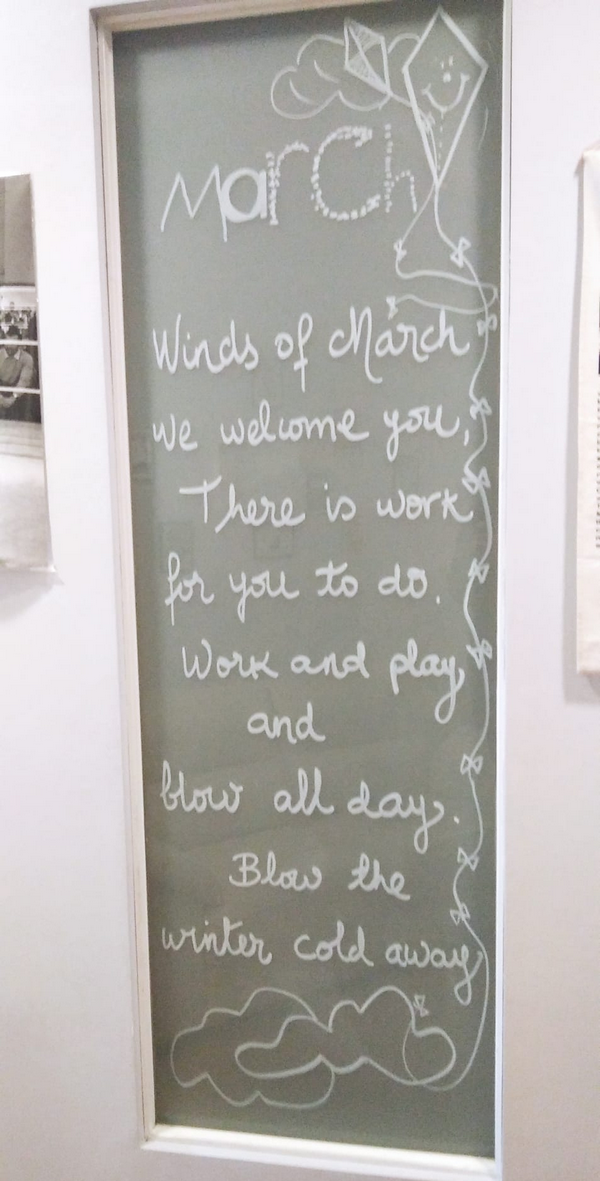 March
Winds of March
We welcome you,
There is work
for you to do.
Work and play,
and
blow all day.
Blow the
winter cold away